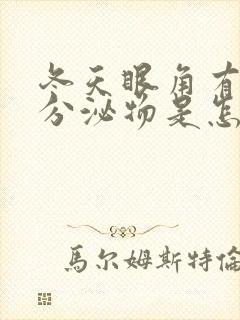 冬天眼角有
分泌物是怎
馬尔姆斯特倫